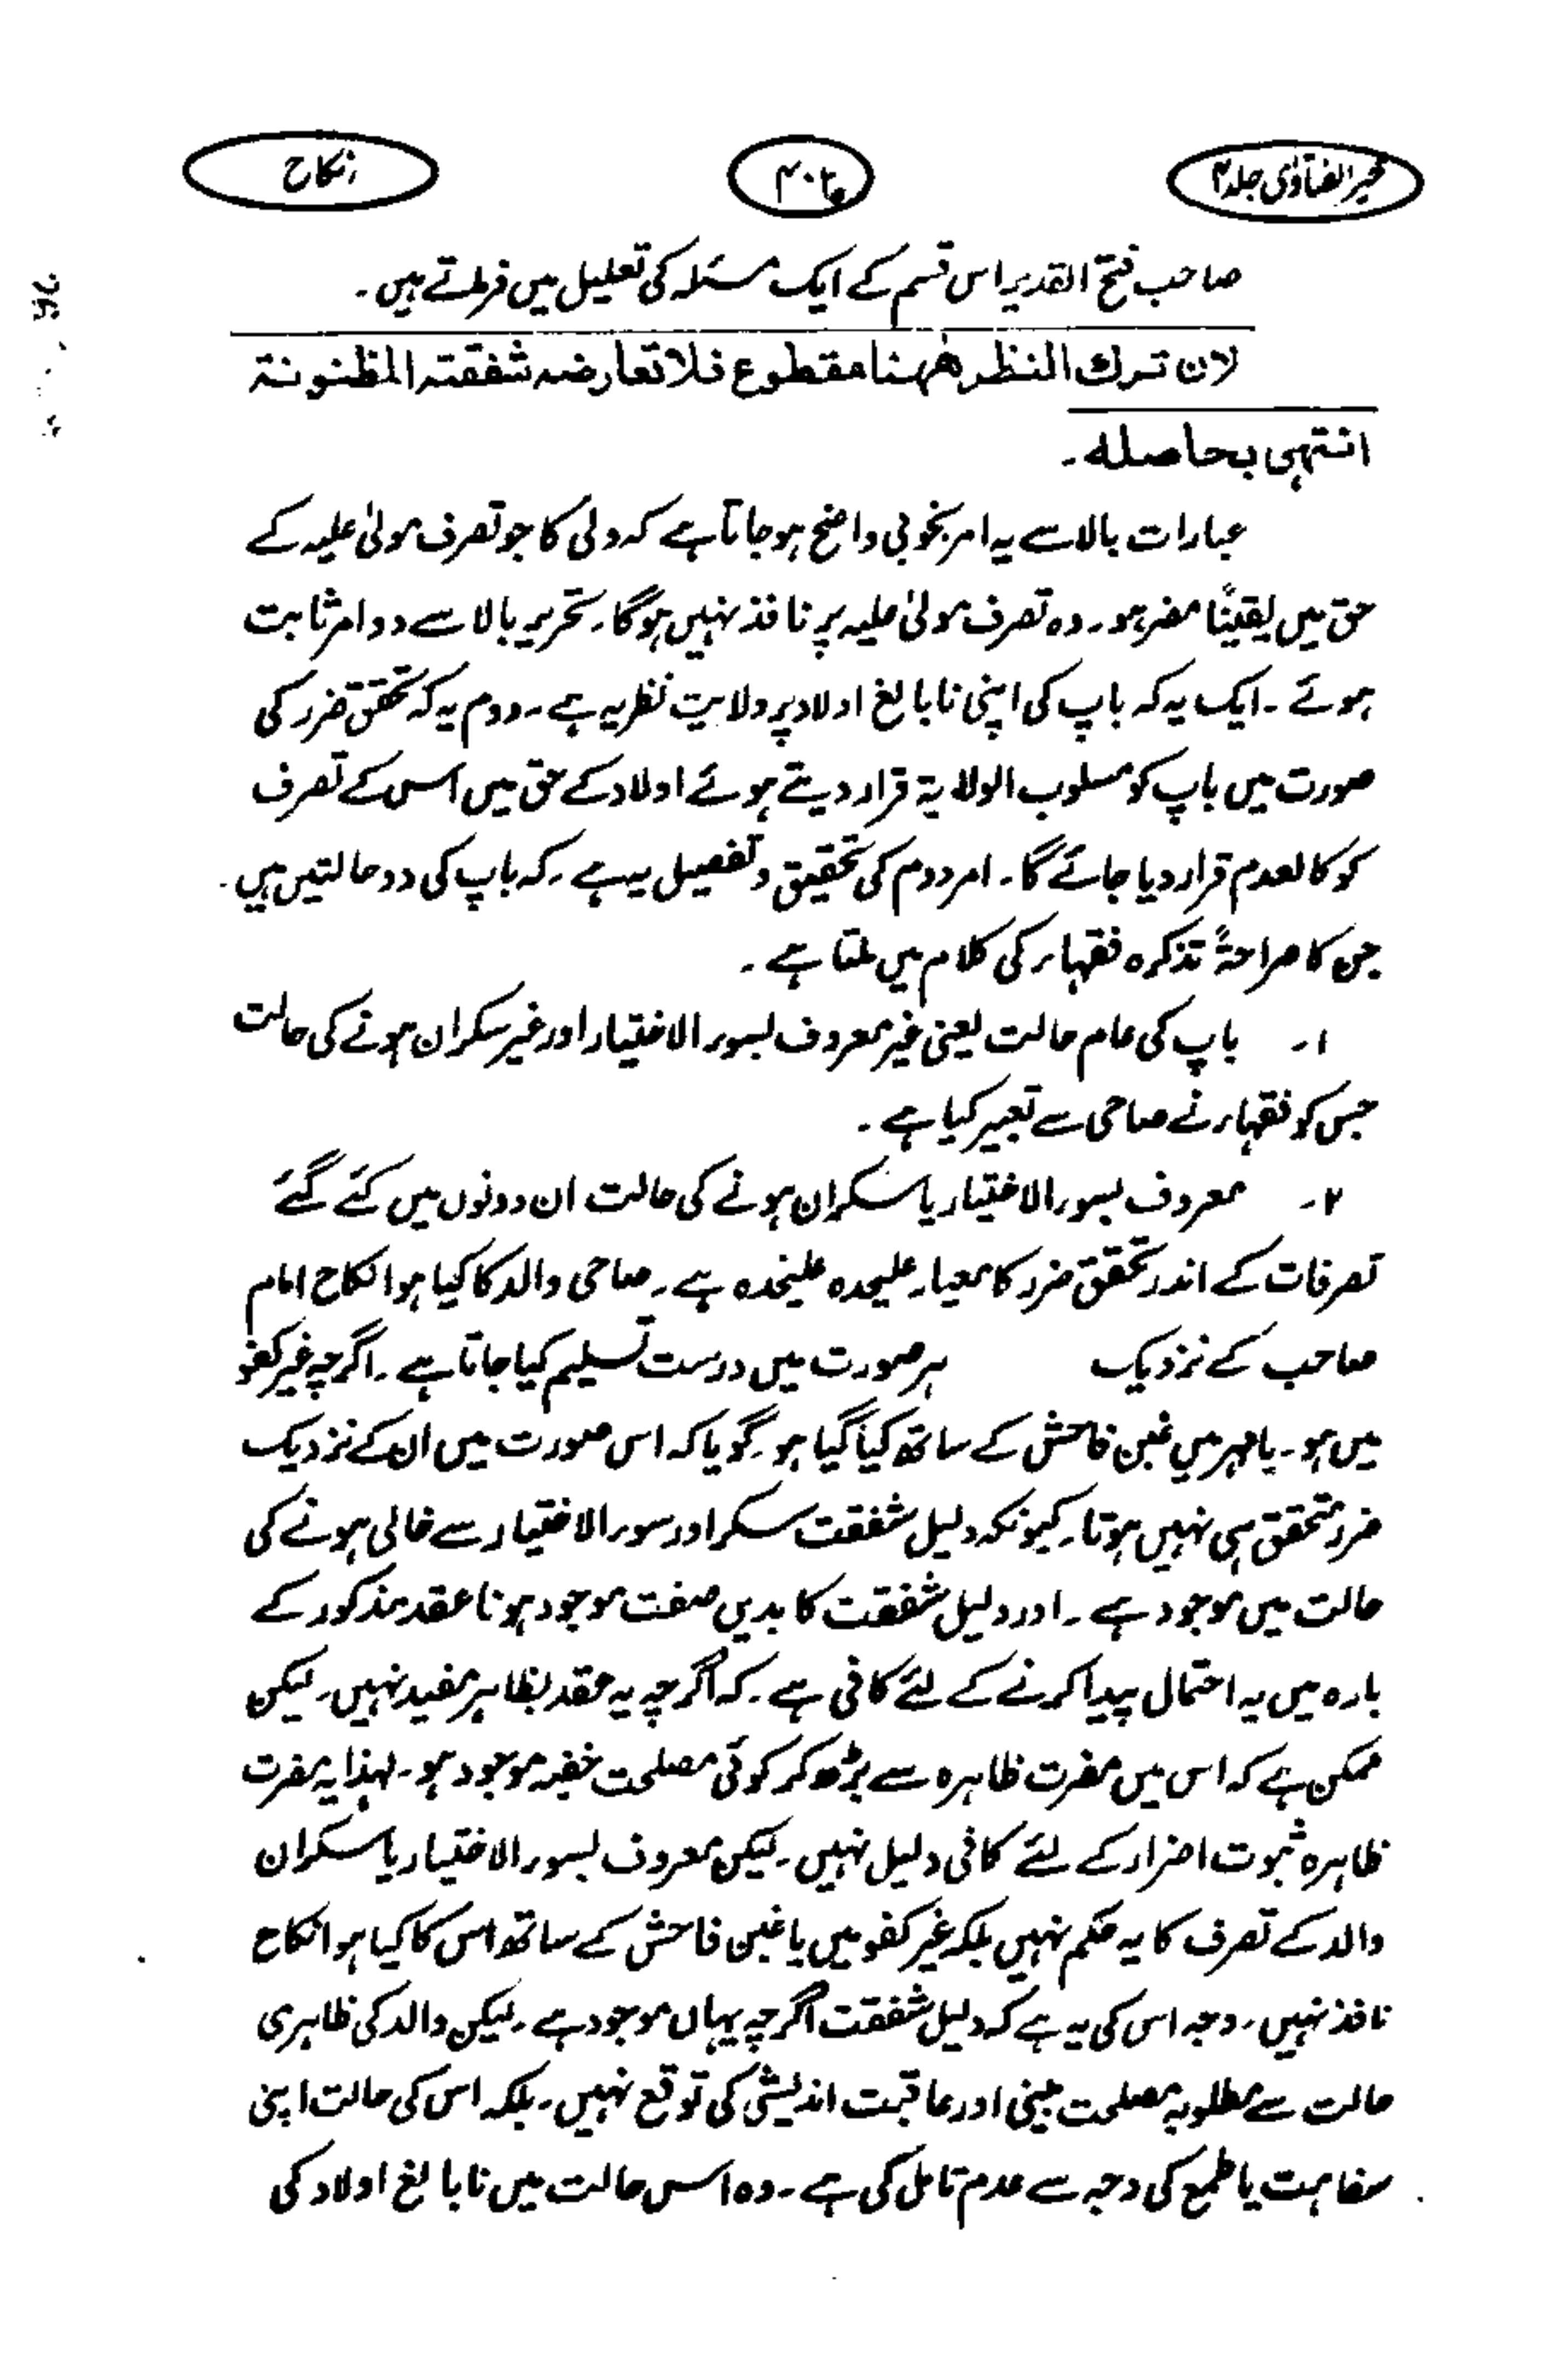 خیر الفتاویٰ جلد ۴
نکاح
صاحب فتح القدیر اس قسم کے ایک مسئلہ کی تعلیل میں فرماتے ہیں۔
لان ترك النظر ههنا مقطوع فلا تعارضہ شفقتہ المظنونۃ
انتہی بحاصلہ۔
عبارات بالا سے یہ امر بخوبی واضح ہوجاتا ہے کہ ولی کا جو تصرف مولیٰ علیہ کے
حق میں یقیناً مضر ہو۔ وہ تصرف مولیٰ علیہ پر نافذ نہیں ہوگا۔ تحریر بالا سے دو امر ثابت
ہوئے۔ ایک یہ کہ باپ کی اپنی نابالغ اولاد پر ولایت نظریہ ہے۔ دوم یہ کہ تحقق ضرر کی
صورت میں باپ کو مسلوب الولایۃ قرار دیتے ہوئے اولاد کے حق میں اس کے تصرف
کو کالعدم قرار دیا جائے گا۔ امر دوم کی تحقیق و تفصیل یہ ہے۔ کہ باپ کی دو حالتیں ہیں۔
جن کا صراحۃً تذکرہ فقہاء کی کلام میں ملتا ہے۔
۱۔ باپ کی عام حالت یعنی غیر معروف بسوء الاختیار اور غیر سکران ہونے کی حالت
جس کو فقہاء نے صاحی سے تعبیر کیا ہے۔
۲۔ معروف بسوء الاختیار یا سکران ہونے کی حالت ان دونوں میں کئے گئے
تصرفات کے اندر تحقق ضرر کا معیار علیحدہ علیحدہ ہے۔ صاحی والد کا کیا ہوا نکاح امام
صاحب کے نزدیک ہر صورت میں درست تسلیم کیا جاتا ہے۔ اگرچہ غیر کفو
میں ہو۔ یا مہر میں غبن فاحش کے ساتھ کیا گیا ہو۔ گویا کہ اس صورت میں ان کے نزدیک
ضرر متحقق ہی نہیں ہوتا۔ کیونکہ دلیل شفقت سکر اور سوء الاختیار سے خالی ہونے کی
حالت میں موجود ہے۔ اور دلیل شفقت کا بدیں صفت موجود ہونا عقد مذکور کے
بارہ میں یہ احتمال پیدا کرنے کے لئے کافی ہے۔ کہ اگرچہ یہ عقد بظاہر مفید نہیں۔ لیکن
ممکن ہے کہ اس میں مضرت ظاہرہ سے بڑھ کر کوئی مصلحت خفیہ موجود ہو۔ لہذا یہ مضرت
ظاہرہ ثبوت اضرار کے لئے کافی دلیل نہیں۔ لیکن معروف بسوء الاختیار یا سکران
والد کے تصرف کا یہ حکم نہیں بلکہ غیر کفو میں یا غبن فاحش کے ساتھ اس کا کیا ہوا نکاح
نافذ نہیں۔ وجہ اس کی یہ ہے کہ دلیل شفقت اگرچہ یہاں موجود ہے۔ لیکن والد کی ظاہری
حالت سے مطلوبہ مصلحت بینی اور عاقبت اندیشی کی توقع نہیں۔ بلکہ اس کی حالت اپنی
سفاہت یا طمع کی وجہ سے عدم تامل کی ہے۔ وہ اس حالت میں نابالغ اولاد کی